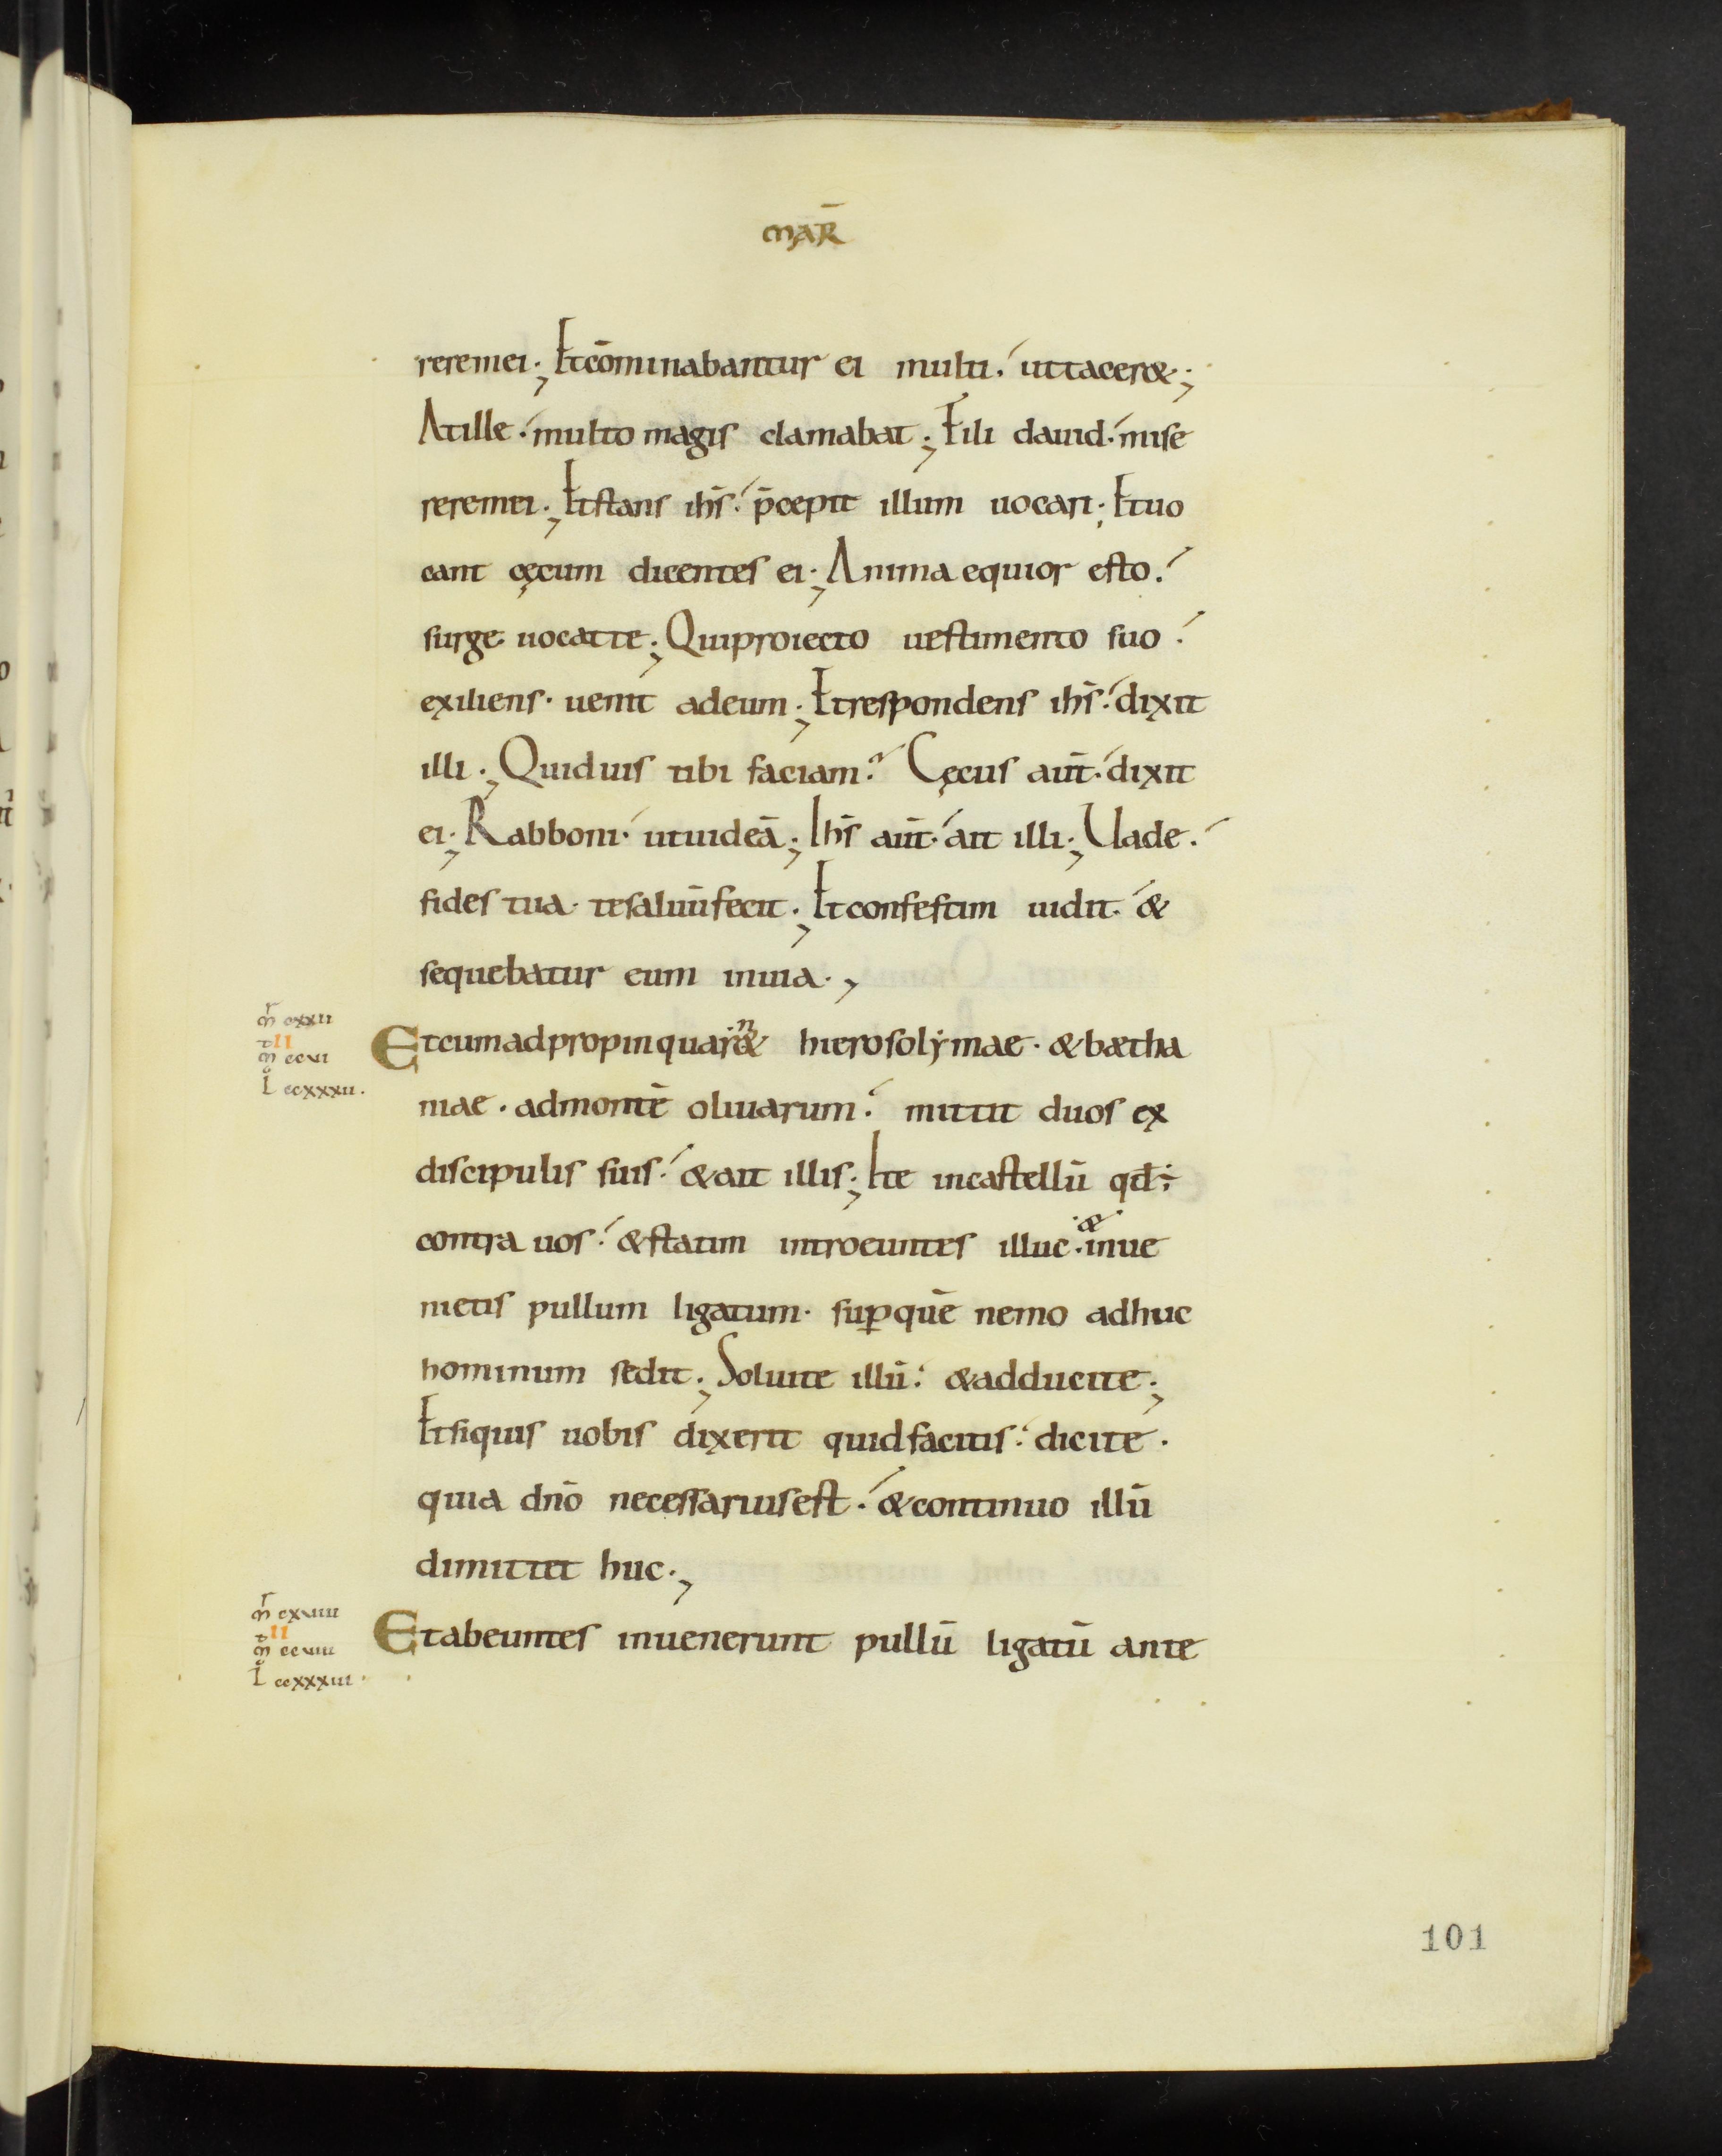 MAR̄
reremei·, Etcōminabantur ei multi. uttacer&·,
Atille· multo magis clamabat·, Fili dauid· mise
reremei·, Etstans ihs̄· p̄cepit illum uocari·, Etuo
cant cęcum dicentes ei·, Anima equior esto.
surge uocat te·, Quiproiecto uestimento suo·
exiliens· uenit adeum·, Etrespondens ihs̄· dixit
illi·, Quiduis tibi faciam? Cęcus aut̄· dixit
ei·, Rabboni· utuideā·, Ihs̄ aut̄· ait illi·, Uade.
fides tua· tesaluūfecit·, Etconfestim uidit· &
sequebatur eum inuia·,
m̄ cxxii
II
m̄ ccvi
L ccxxxii.
Etcumadpropinquar&ⁿ hierosolẏmae· &b&tha
niae· admontē oliuarum· mittit duos ex
discipulis suis· &ait illis·, Ite incastellū qd̄ ÷
contra uos· &statim introeuntes illuc· ·&· inue
nietis pullum ligatum· sup̱quē nemo adhuc
hominum sedit·, Soluite illū· &adducite·,
Etsiquis uobis dixerit quidfacitis· dicite·
quia dnō necessariusest· &continuo illū
dimittet huc·,
m̄ cxviiii
II
m̄ ccviii
L ccxxxiii·
Etabeuntes inuenerunt pullū ligatū ante
101